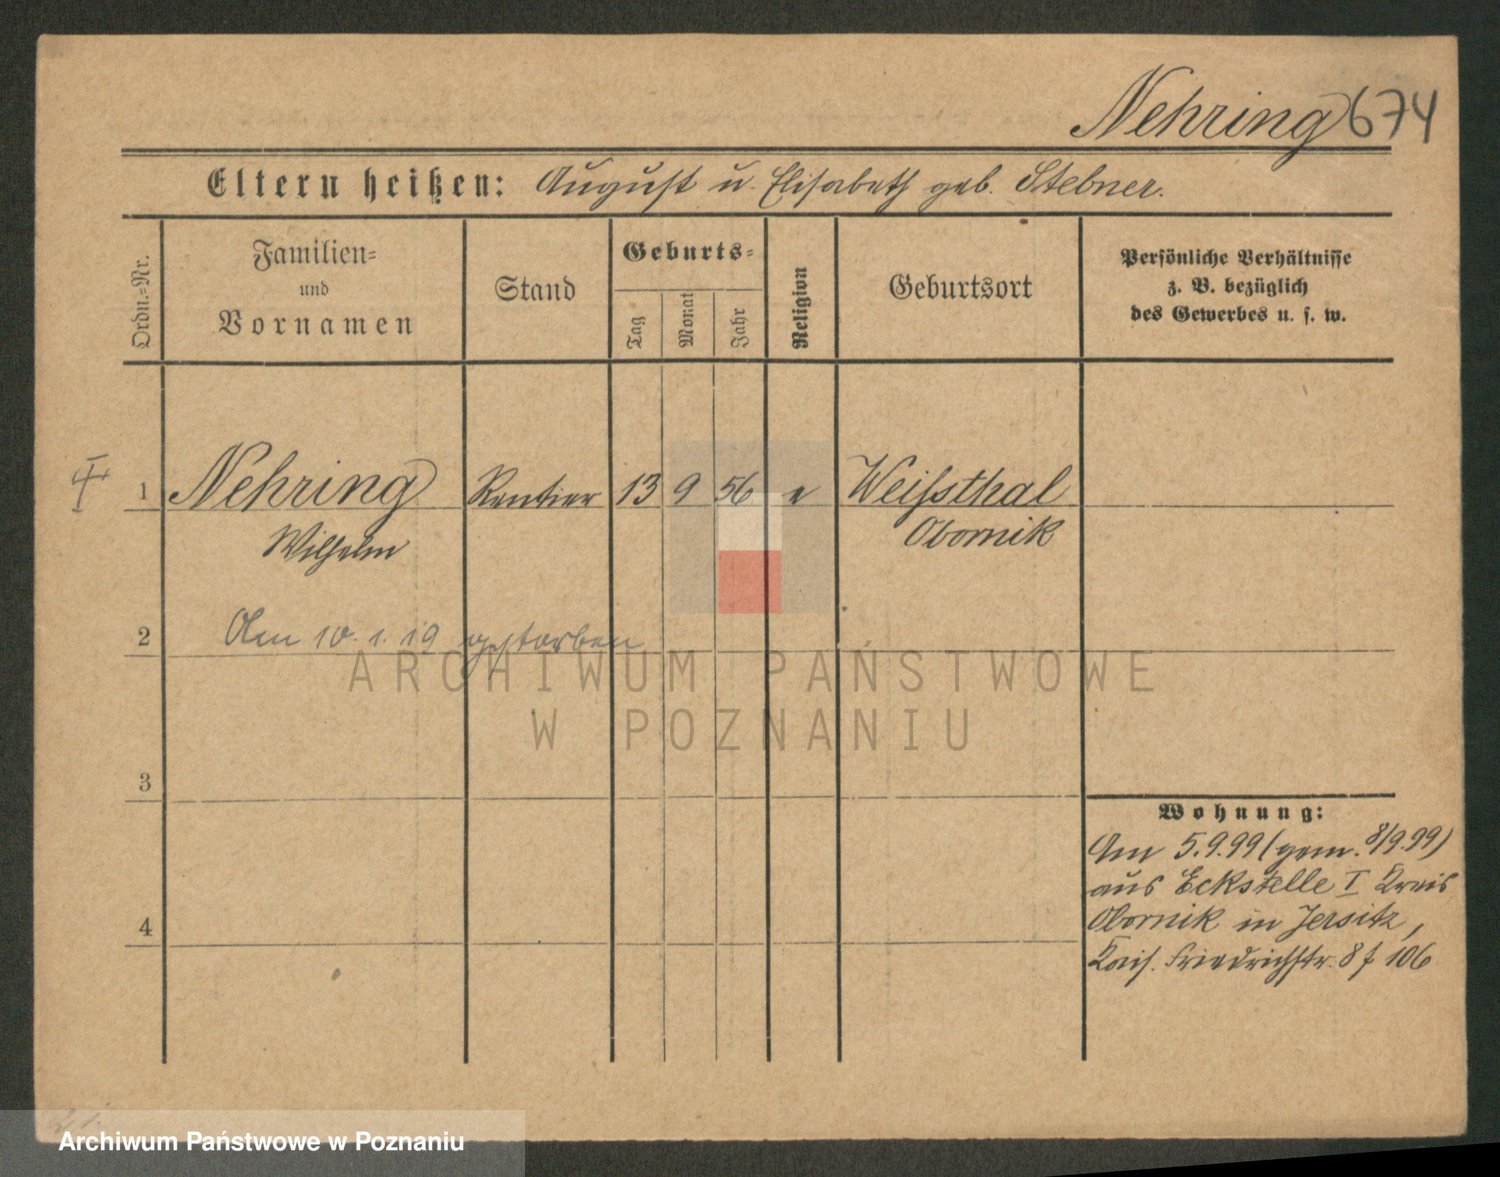 Nehring 674
Eltern heißen: August u. Elisabeth geb. Stebner.
Ordn.=Nr.
Familien=
und
Vornamen
Stand
Geburts=
Tag
Monat
Jahr
Religion
Geburtsort
Persönliche Verhältnisse
z. B. bezüglich
des Gewerbes u. s. w.
1 Nehring Rentier 13 9 56 e Weißsthal
Wilhelm Obornik
2 Am 10. 1. 19 gestorben
ARCHIWUM PAŃSTWOWE
W POZNANIU
3
4
Wohnung:
Am 5.9.99 (gem. 8/9.99)
aus Eckstelle I Kreis
Obornik in Jersitz,
Kais. Friedrichstr. 8 f 106
Archiwum Państwowe w Poznaniu